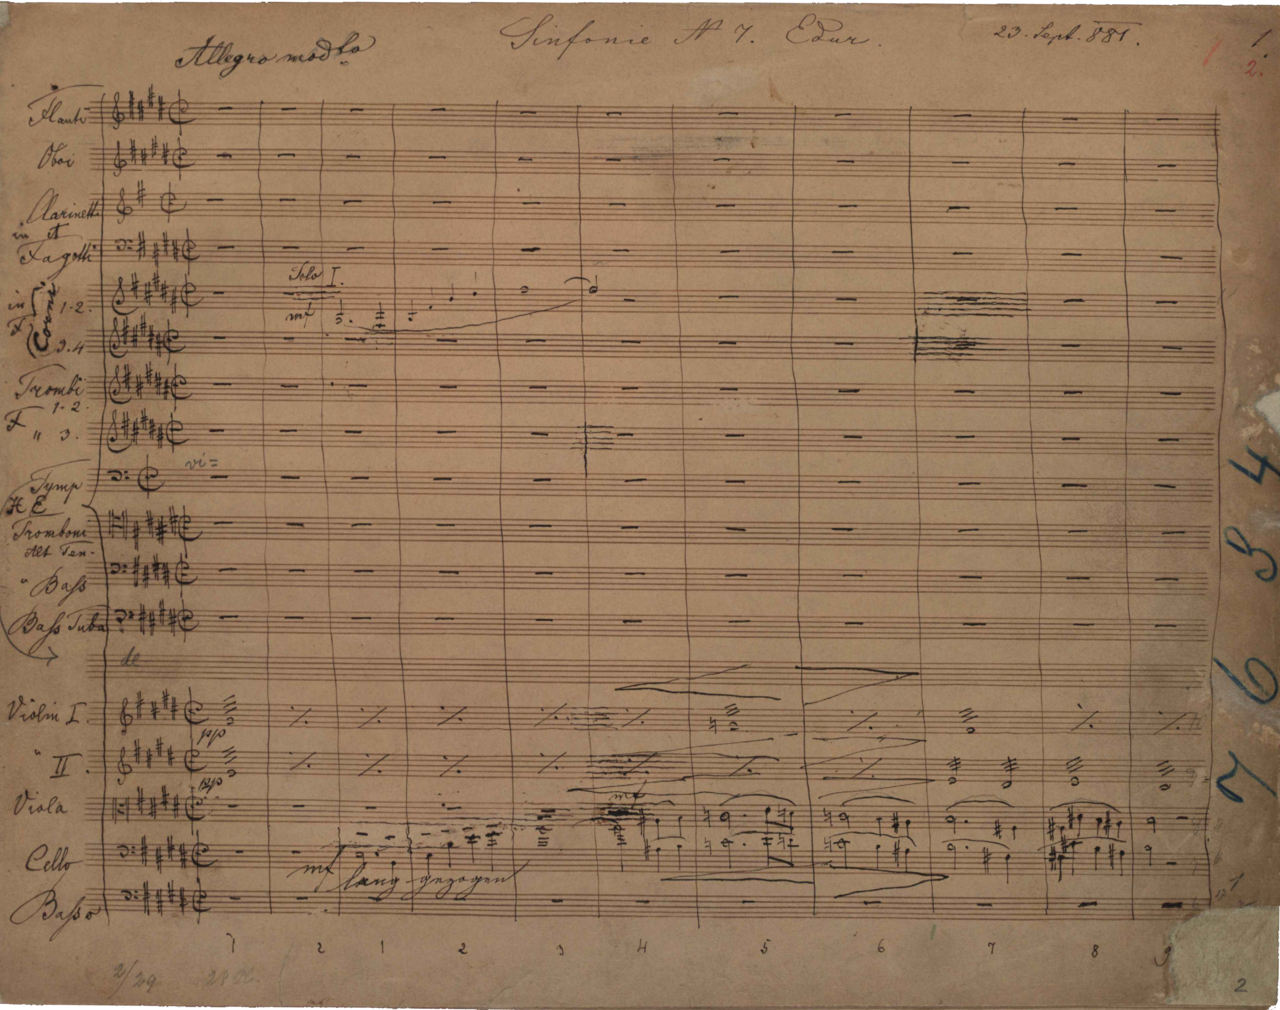 Sinfonie No 7. Edur.
23. Sept. 881.
1.
2.
Allegro modto
Flauti
Oboi
Clarinetti
in A
Fagotti
Solo I.
mf
in F
Corni
1-2.
3.4
Trombi
1-2.
F
" 3.
vi=
Tymp
H E
Tromboni
Alt Ten-
" Baß
Baß Tuba
de
Violin I.
pp
" II.
pp
Viola
mf
Cello
mf lang gezogen
Basso
1 2 1 2 3 4 5 6 7 8 9
2/29
7634
2